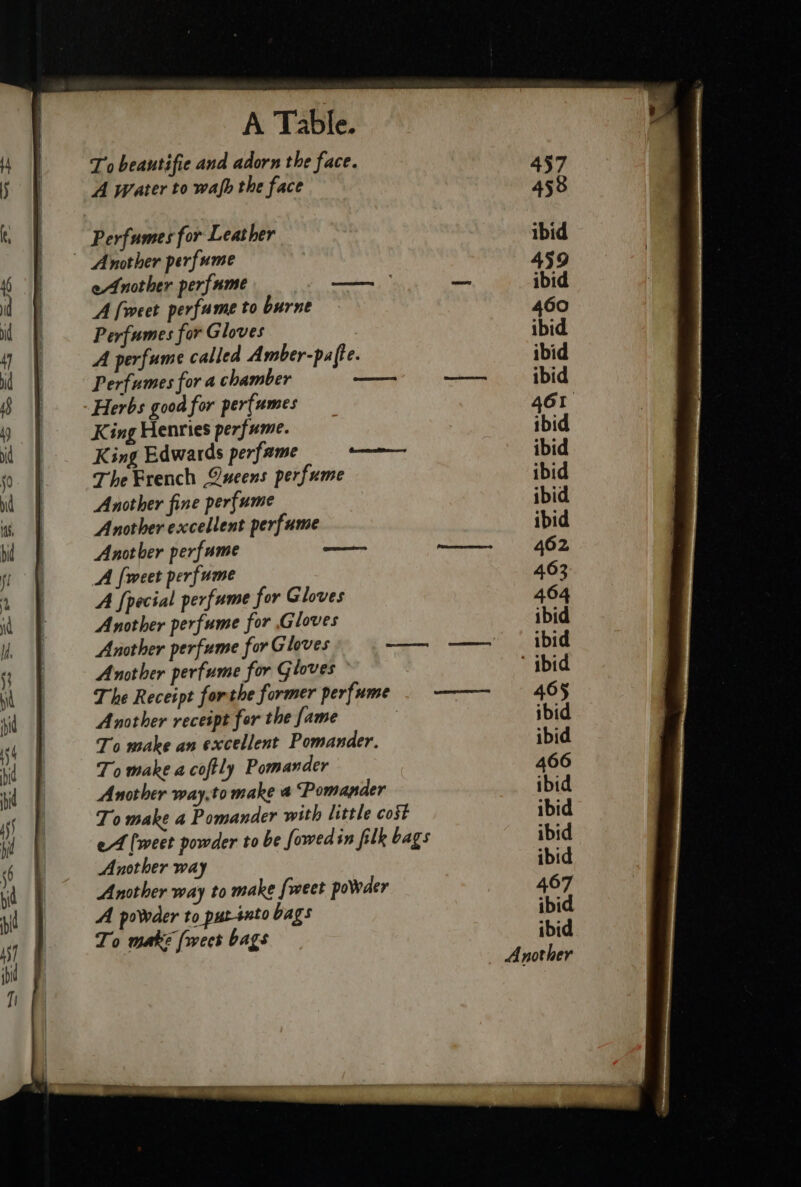 A Table.
To beautifie and adorn the face. 457
A Water to waſh the face 458
Perfumes for Leather ibid
Another perfume 459
Another perfume —— — ibid
A ſweet perfume to burne 460
Perfumes for Gloves ibid
A perfume called Amber-paſte. ibid
Perfumes for a chamber —— —— ibid
Herbs good for perfumes 461
King Henries perfume. ibid
King Edwards perfame —— ibid
The French Queens perfume ibid
Another fine perfume ibid
Another excellent perfume ibid
Another perfume —— —— 462
A ſweet perfume 463
A ſpecial perfume for Gloves 464
Another perfume for Gloves ibid
Another perfume for Gloves —— —— ibid
Another perfume for Gloves ibid
The Receipt for the former perfume —— 465
Another receipt for the ſame ibid
To make an excellent Pomander. ibid
To make a coſtly Pomander 466
Another way to make a Pomander ibid
To make a Pomander with little cost ibid
A ſweet powder to be ſowed in ſilk bags ibid
Another way ibid
Another way to make ſweet powder 467
A powder to put into bags ibid
To make ſweet bags ibid
Another